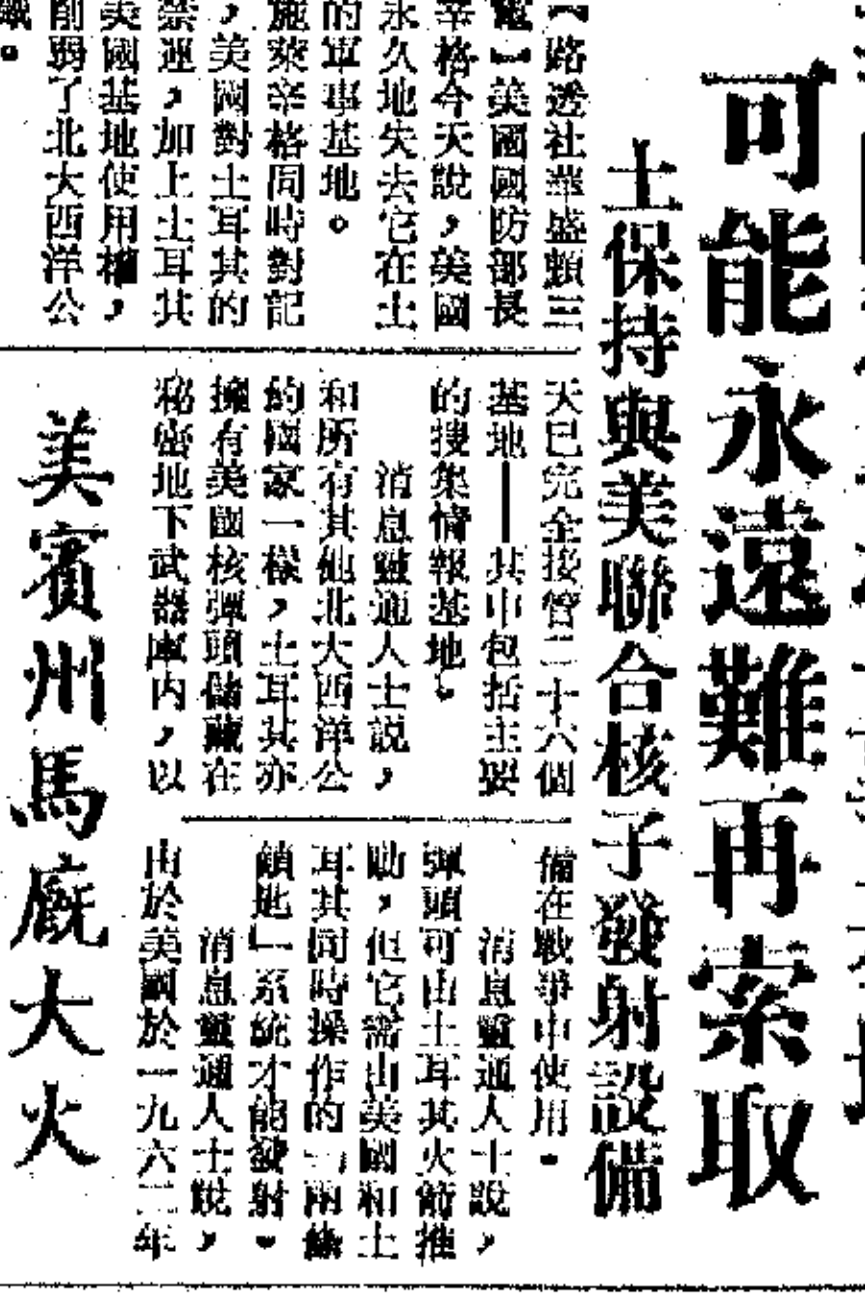 可能永遠難再索取
土保持與美聯合核子發射設備
【路透社華盛頓三
電】美國國防部長
辛格今天說，美國
永久地失去它在土
的軍事基地。
施萊辛格同時對記
，美國對土耳其的
禁運，加上土耳其
美國基地使用權，
削弱了北大西洋公
織。
天已完全接管二十六個
基地——其中包括主要
的搜集情報基地。
消息靈通人士說，
和所有其他北大西洋公
約國家一樣，土耳其亦
擁有美國核彈頭儲藏在
秘密地下武器庫內，以
備在戰爭中使用。
消息靈通人士說，
彈頭可由土耳其火箭推
動，但它需由美國和土
耳其同時操作的「兩條
鎖匙」系統才能發射。
消息靈通人士說，
由於美國於一九六二年
美賓州馬廐大火